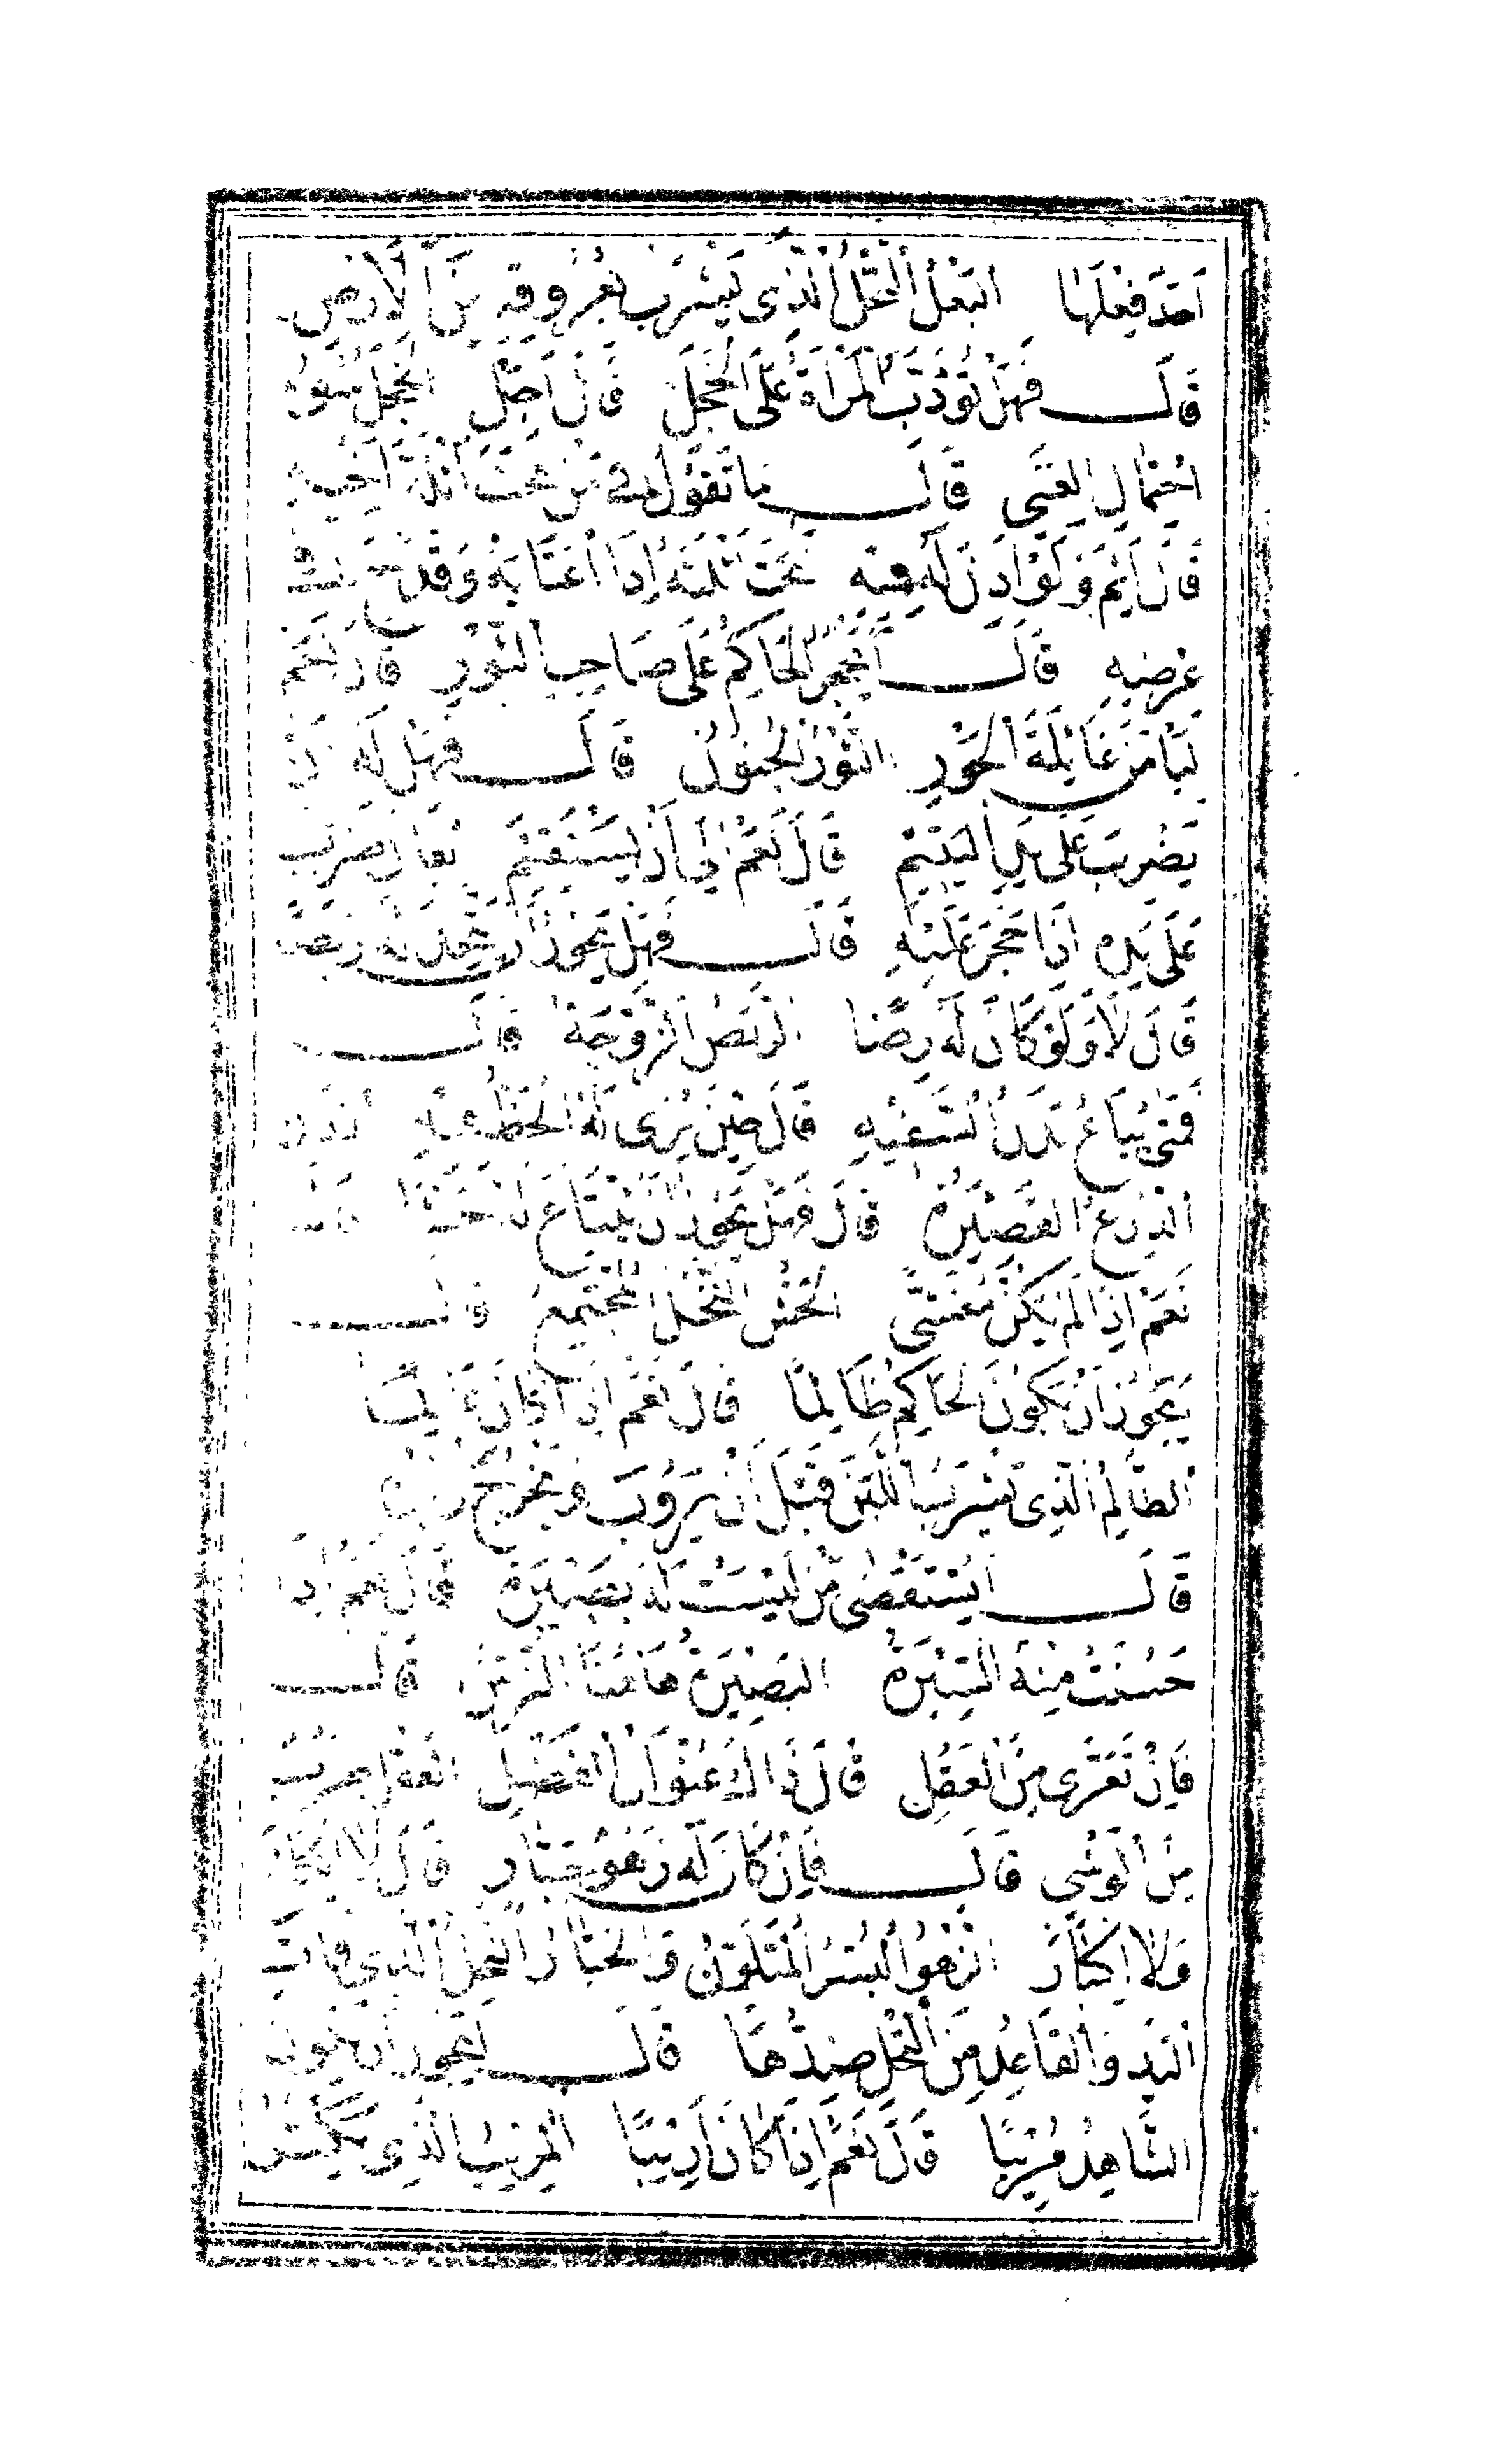 أَحَدٌ فِعْلَهَا الْبَعْلُ النَّخْلُ الَّذِي يَشْرَبُ بِعُرُوقِهِ مِنَ الْأَرْضِ
قَالَ فَهَلْ تُؤَدَّبُ الْمَرْأَةُ عَلَى الْخَجَلِ قَالَ أَجَلْ الْخَجَلُ سُوءُ
احْتِمَالِ الْغِنَى قَالَ مَا تَقُولُ فِي مَنْ نَحَتَ أَثْلَةَ أَخِيهِ
قَالَ أَثِمَ وَلَوْ أَذِنَ لَهُ فِيهِ نَحَتَ أَثْلَتَهُ إِذَا اغْتَابَهُ وَقَدَحَ فِي
عِرْضِهِ قَالَ أَيَحْجُرُ الْحَاكِمُ عَلَى صَاحِبِ الثَّوْرِ قَالَ نَعَمْ
لِيَأْمَنَ غَائِلَةَ الْجَوْرِ الثَّوْرُ الْجُنُونُ قَالَ فَهَلْ لَهُ أَنْ
يَضْرِبَ عَلَى يَدِ الْيَتِيمِ قَالَ نَعَمْ إِلَى أَنْ يَسْتَقِيمَ يُقَالُ ضَرَبَ
عَلَى يَدِهِ إِذَا حَجَرَ عَلَيْهِ قَالَ فَهَلْ يَجُوزُ أَنْ يَتَّخِذَ لَهُ رَبَضًا
قَالَ لَا وَلَوْ كَانَ لَهُ رِضًا الرَّبَضُ الزَّوْجَةُ قَالَ
فَمَتَى يَبِيعُ بَدَنَ السَّفِيهِ قَالَ حِينَ يُرَى لَهُ الْحَظُّ فِيهِ الْبَدَنُ
الدِّرْعُ الْقَصِيرَةُ قَالَ فَهَلْ يَجُوزُ أَنْ يَبْتَاعَ لَهُ حَشًّا قَالَ
نَعَمْ إِذَا لَمْ يَكُنْ مُغَشًّى الْحَشُّ النَّخْلُ الْمُجْتَمِعُ قَالَ
يَجُوزُ أَنْ يَكُونَ الْحَاكِمُ ظَالِمًا قَالَ نَعَمْ إِذَا كَانَ عَالِمًا
الظَّالِمُ الَّذِي يَشْرَبُ اللَّبَنَ قَبْلَ أَنْ يَرُوبَ وَيَخْرُجَ زُبْدُهُ
قَالَ أَيُسْتَقْضَى مَنْ لَيْسَتْ لَهُ بَصِيرَةٌ قَالَ نَعَمْ إِذَا
حَسُنَتْ مِنْهُ السِّيرَةُ الْبَصِيرَةُ هَاهُنَا التُّرْسُ قَالَ
فَإِنْ تَعَرَّى مِنَ الْعَقْلِ قَالَ ذَاكَ عُنْوَانُ الْفَضْلِ الْعَقْلُ ضَرْبٌ
مِنَ الْوَشْيِ قَالَ فَإِنْ كَانَ لَهُ زَهْوُ جَبَّارٍ قَالَ لَا إِنْكَارَ
وَلَا إِكْبَارَ الزَّهْوُ الْبُسْرُ الْمُتَلَوِّنُ وَالْجَبَّارُ النَّخْلُ الَّذِي فَاتَ
الْيَدَ وَالْقَاعِدُ مِنَ النَّخْلِ ضِدُّهَا قَالَ أَيَجُوزُ أَنْ يَكُونَ
الشَّاهِدُ مُرِيبًا قَالَ نَعَمْ إِذَا كَانَ أَرِيبًا الْمُرِيبُ الَّذِي يَكْثُرُ